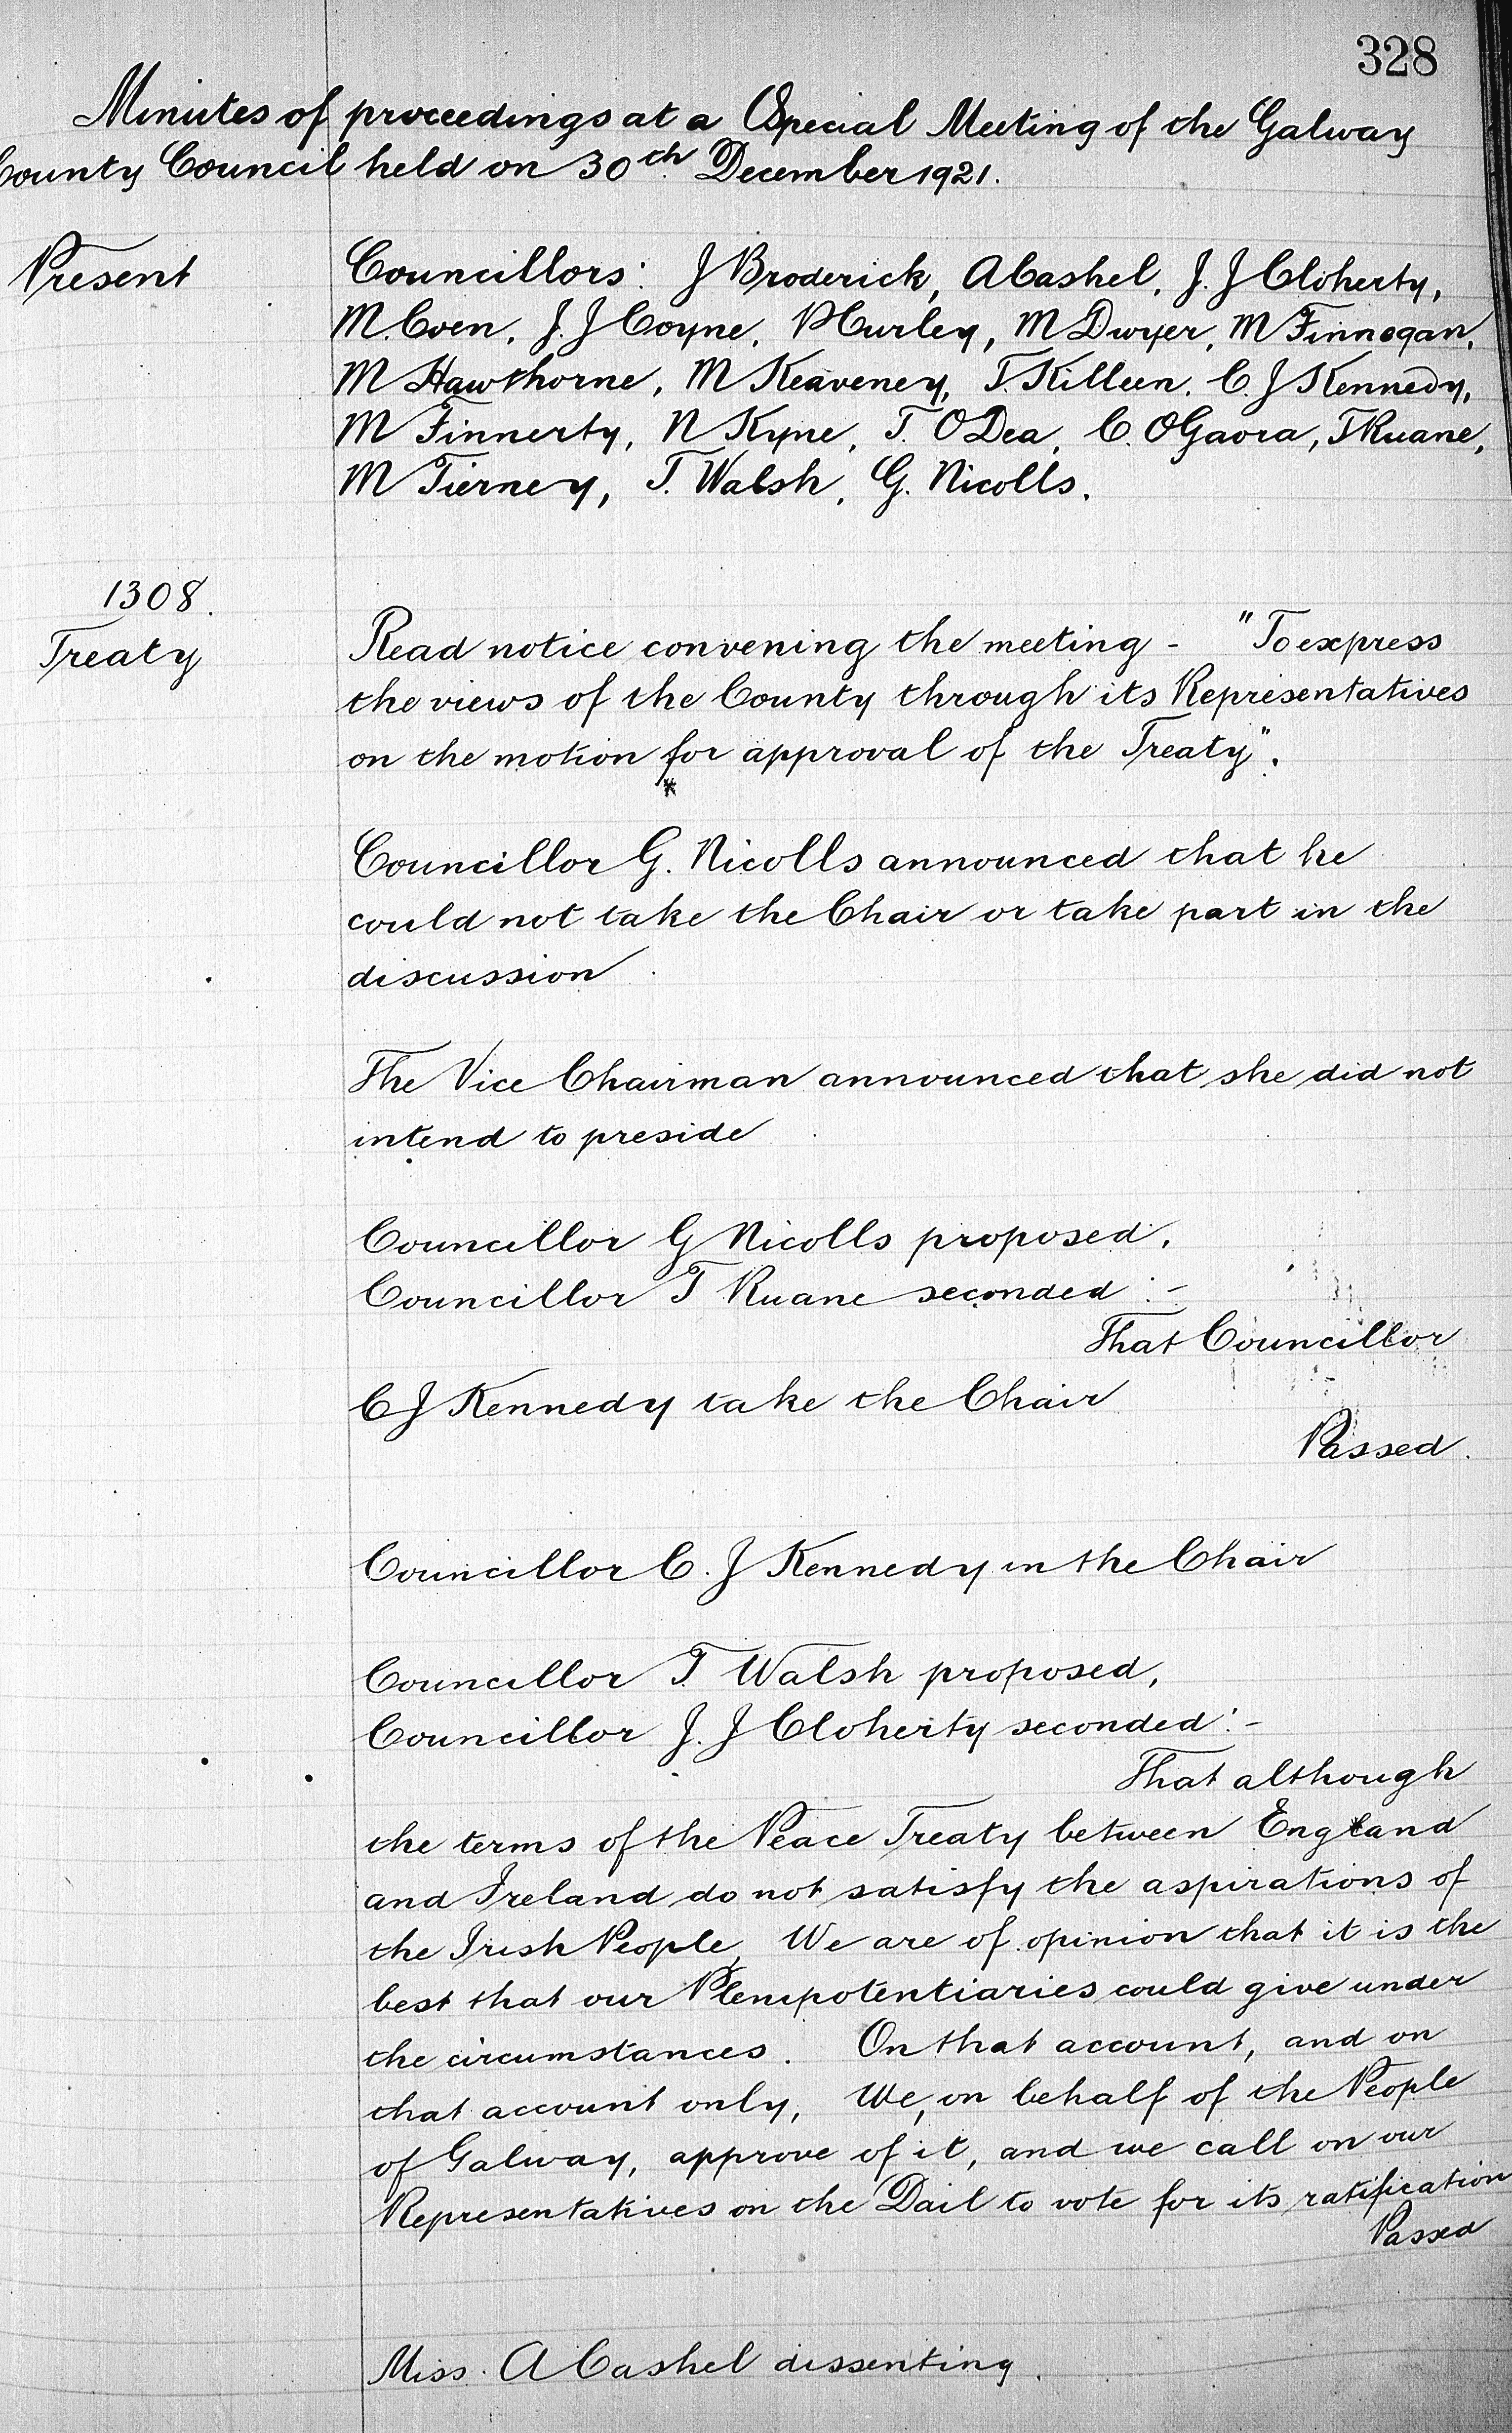 328
Minutes of proceedings at a Special Meeting of the Galway
County Council held on 30th December 1921.
Present
Councillors: J Broderick, A Cashel, J. J Cloherty,
M. Coen, J. J Coyne, P Hurley, M Dwyer, M Finnegan,
M Hawthorne, M Keaveney, T. Killeen, C. J Kennedy,
M Finnerty, N Kyne, T. O Dea, C. O Gaora, T Ruane,
M Tierney, T. Walsh, G. Nicolls.
1308.
Treaty
Read notice convening the meeting - "To express
the views of the County through its Representatives
on the motion for approval of the Treaty".
*
Councillor G. Nicolls announced that he
could not take the Chair or take part in the
discussion.
The Vice Chairman announced that she did not
intend to preside.
Councillor G Nicolls proposed,
Councillor T Ruane seconded :-
That Councillor
C J Kennedy take the Chair
Passed.
Councillor C. J Kennedy in the Chair
Councillor T. Walsh proposed,
Councillor J. J Cloherty seconded :-
That although
the terms of the Peace Treaty between England
and Ireland do not satisfy the aspirations of
the Irish People, We are of opinion that it is the
best that our Plenipotentiaries could give under
the circumstances. On that account, and on
that account only, We, on behalf of the People
of Galway, approve of it, and we call on our
Representatives on the Dail to vote for its ratification
Passed
Miss. A Cashel dissenting.